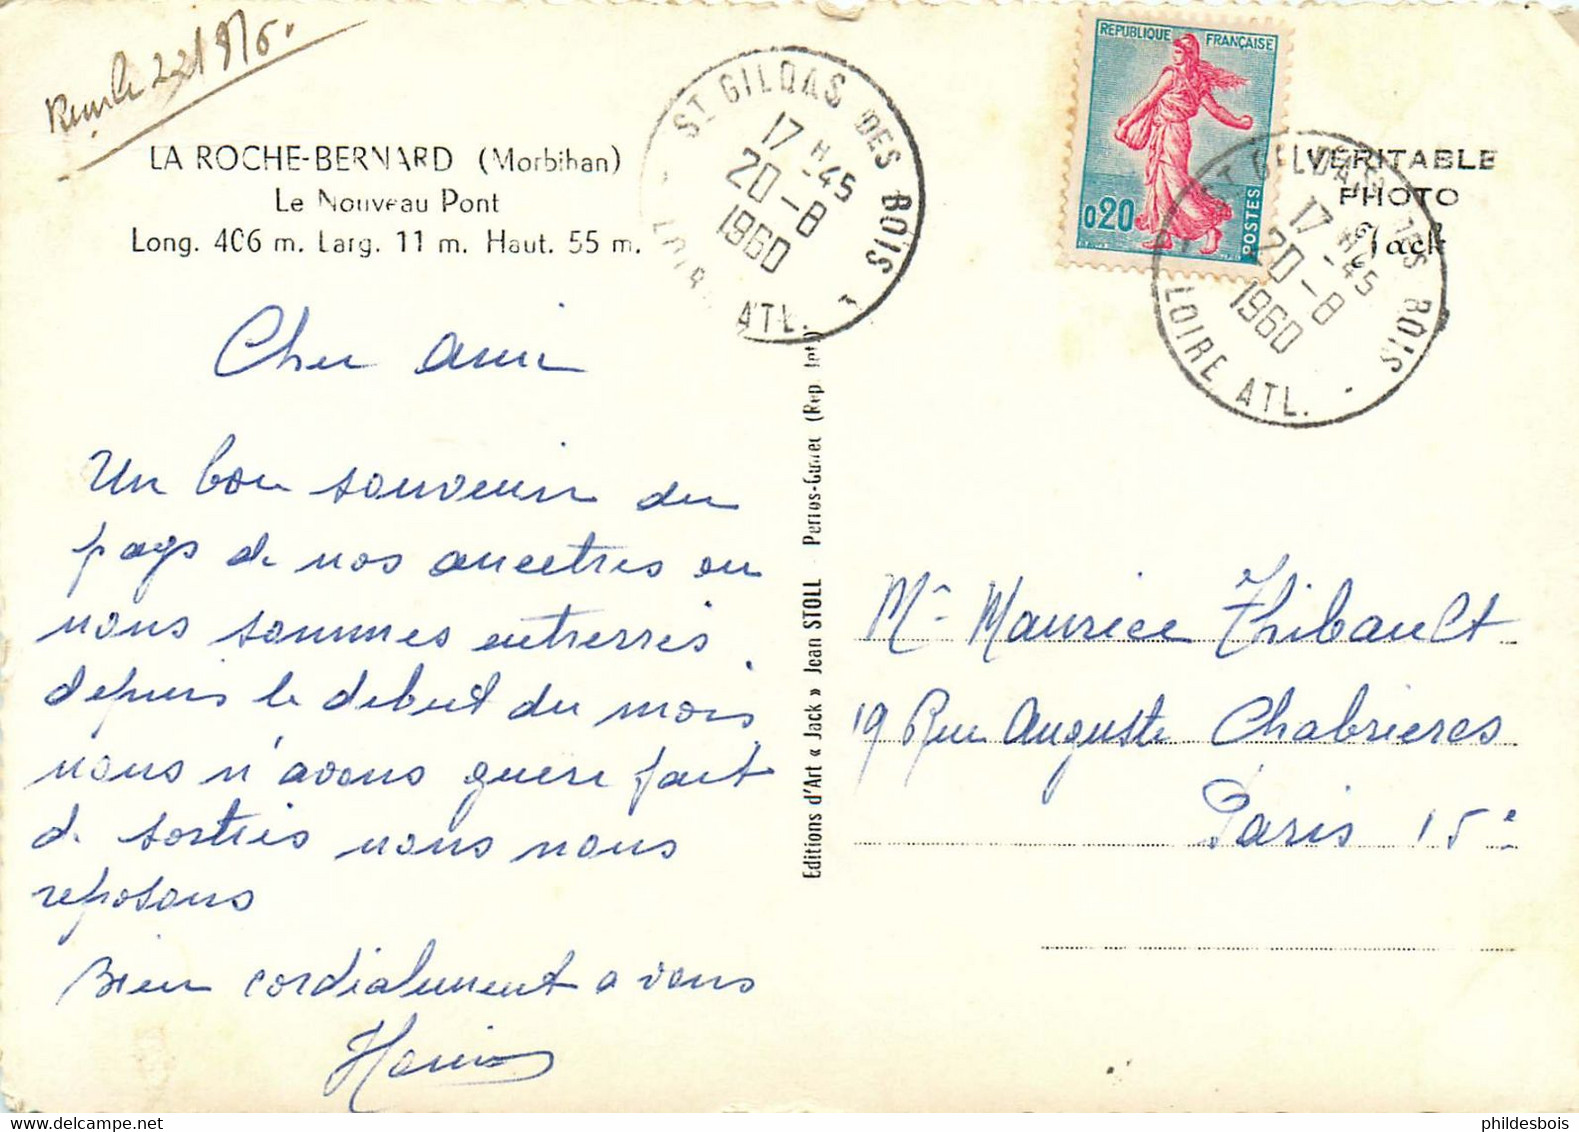 LA ROCHE-BERNARD (Morbihan)
Le Nouveau Pont
Long. 406 m. Larg. 11 m. Haut. 55 m.
Cher Ami
Un bon souvenir du
pays de nos ancetres ou
nous sommes entrerrés
depuis le debut du mois
nous n'avons guere fait
de sorties nous nous
reposons
Bien cordialement a vous
ST GILDAS DES BOIS
17 H -45
20-8
1960
LOIRE ATL.
Editions d'Art « Jack » Jean STOLL - Perros-Guirec (Rep. Int.)
REPUBLIQUE FRANÇAISE
0,20
POSTES
ST GILDAS DES BOIS
17 H -45
20-8
1960
LOIRE ATL.
VÉRITABLE
PHOTO
Jack
Mr Maurice Thibault
19 Rue Auguste Chabrieres
Paris 15e
phildesbois